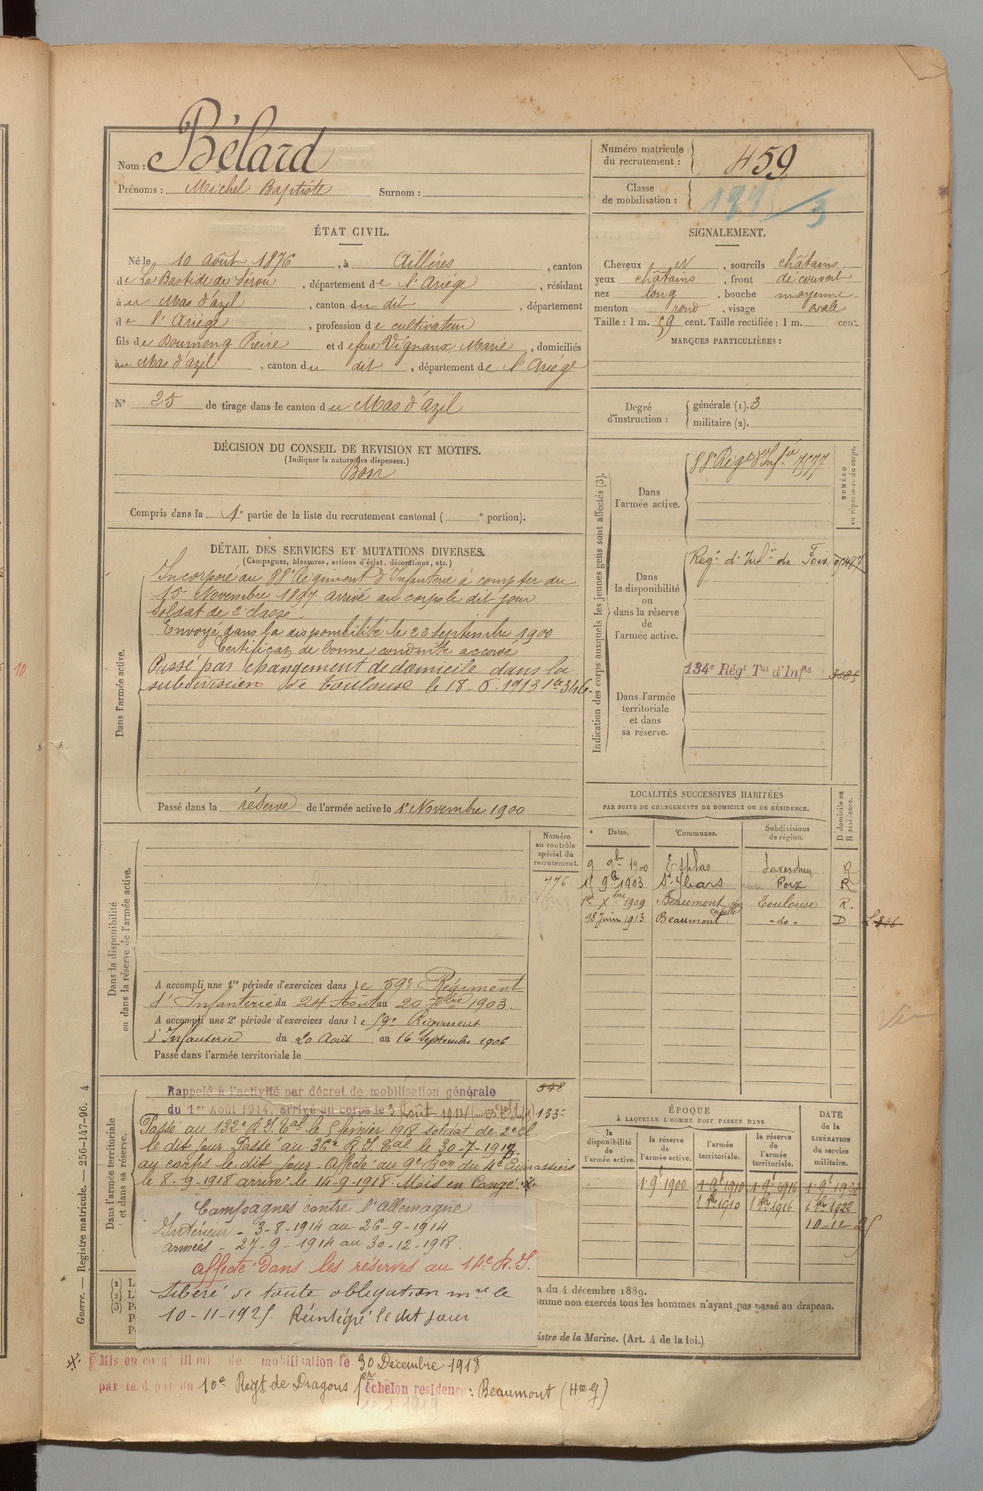 Nom : Bélard
Prénoms : Michel Baptiste Surnom :
Numéro matricule du recrutement : 459
Classe de mobilisation : 3
ÉTAT CIVIL.
Né le 10 août 1876, à Aillères, canton
de La Bastide de Sérou, département de l'Ariège, résidant
à au Mas d'azil, canton du dit, département
de l'Ariège, profession de cultivateur
fils de Doumeng Pierre et de feue Vignaux Marie, domiciliés
au Mas d'azil, canton du dit, département de l'Ariège
N° 25 de tirage dans le canton du Mas d'azil
SIGNALEMENT.
Cheveux et, sourcils châtains
yeux châtains, front découvert
nez long, bouche moyenne
menton rond, visage ovale
Taille : 1 m. 59 cent. Taille rectifiée : 1 m. cent.
MARQUES PARTICULIÈRES :
Degré d'instruction : générale (1). 3
militaire (2).
DÉCISION DU CONSEIL DE REVISION ET MOTIFS.
(Indiquer la nature des dispenses.)
Bon
Compris dans la 1e partie de la liste du recrutement cantonal ( e portion).
DÉTAIL DES SERVICES ET MUTATIONS DIVERSES.
(Campagnes, blessures, actions d'éclat, décorations, etc.)
Dans l'armée active.
Incorporé au 88e Régiment d'Infanterie à compter du
15 Novembre 1897 arrivé au corps le dit jour
soldat de 2e classe
Envoyé dans la disponibilité le 23 septembre 1900
Certificat de bonne conduite accordé
Passé par changement de domicile dans la
subdivision de Toulouse le 18-6-1913
Passé dans la réserve de l'armée active le 1er Novembre 1900
Indication des corps auxquels les jeunes gens sont affectés (3).
NUMÉRO au répertoire du corps.
Dans l'armée active.
88e Régt d'Infie 7777
Dans la disponibilité ou dans la réserve de l'armée active.
Regt d'Infie de Foix
Dans l'armée territoriale et dans sa réserve.
134e Régt Tal d'Infie
LOCALITÉS SUCCESSIVES HABITÉES
PAR SUITE DE CHANGEMENTS DE DOMICILE OU DE RÉSIDENCE.
Dates. Communes. Subdivisions de région. D domicile ou R résidence.
9 9bre 1900 Esplas R
9bre 1903 St Ybars Foix R
1er Xbre 1909 Beaumont Toulouse R.
18 juin 1913 Beaumont -do- D
Dans la disponibilité ou dans la réserve de l'armée active.
Numéro au contrôle spécial du recrutement.
776
A accompli une 1re période d'exercices dans le 59e Régiment
d'Infanterie du 24 Août au 20 7bre 1903.
A accompli une 2e période d'exercices dans le 59e Régiment
d'Infanterie du 20 Août au 16 Septembre 1906
Passé dans l'armée territoriale le
Dans l'armée territoriale et dans sa réserve.
548
Rappelé à l'activité par décret de mobilisation générale
du 1er Août 1914, arrivé au corps le 3 Août 1914
Passé au 132e R.I. Tal le 5 février 1918 soldat de 2e cl
le dit jour Passé au 36e R.I. Tal le 30-7-1918
au corps le dit jour - Affecté au 9e Bon du 4e Cuirassiers
le 8-9-1918 arrivé le 14-9-1918. Mis en Congé
Campagnes contre l'Allemagne
Intérieur - 3-8-1914 au 26-9-1914
armées - 27-9-1914 au 30-12-1918.
affecté dans les réserves au 14e R.I.
Libéré de toute obligation mre le
10-11-1925. Réintégré le dit jour
ÉPOQUE
À LAQUELLE L'HOMME DOIT PASSER DANS
la disponibilité de l'armée active.
la réserve de l'armée active.
l'armée territoriale.
la réserve de l'armée territoriale.
DATE de la LIBÉRATION du service militaire.
1 9e 1900
1 9e 1910
1 9e 1916
1910
1916
1922
n du 4 décembre 1889.
omme non exercés tous les hommes n'ayant pas passé au drapeau.
istre de la Marine. (Art. 4 de la loi.)
Mis en congé mobilisation le 30 Décembre 1918
10e Régt de Dragons 1er échelon residence : Beaumont
Guerre. — Registre matricule. — 256-147-96. 4